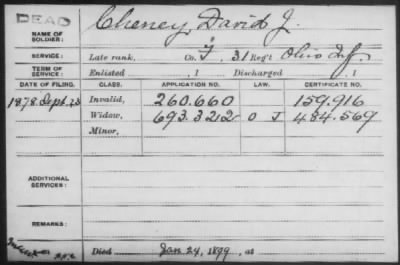 DEAD
Cheney, David J.
NAME OF SOLDIER:
SERVICE: Late rank, Co. F, 31 Reg't Ohio Inf.
TERM OF SERVICE: Enlisted , 1 Discharged , 1
DATE OF FILING. CLASS. APPLICATION NO. LAW. CERTIFICATE NO.
1878 Sept. 23 Invalid, 260.660 159.916
Widow, 693.322 O J 484.569
Minor,
ADDITIONAL SERVICES:
REMARKS:
Died Jan 24, 1899, at